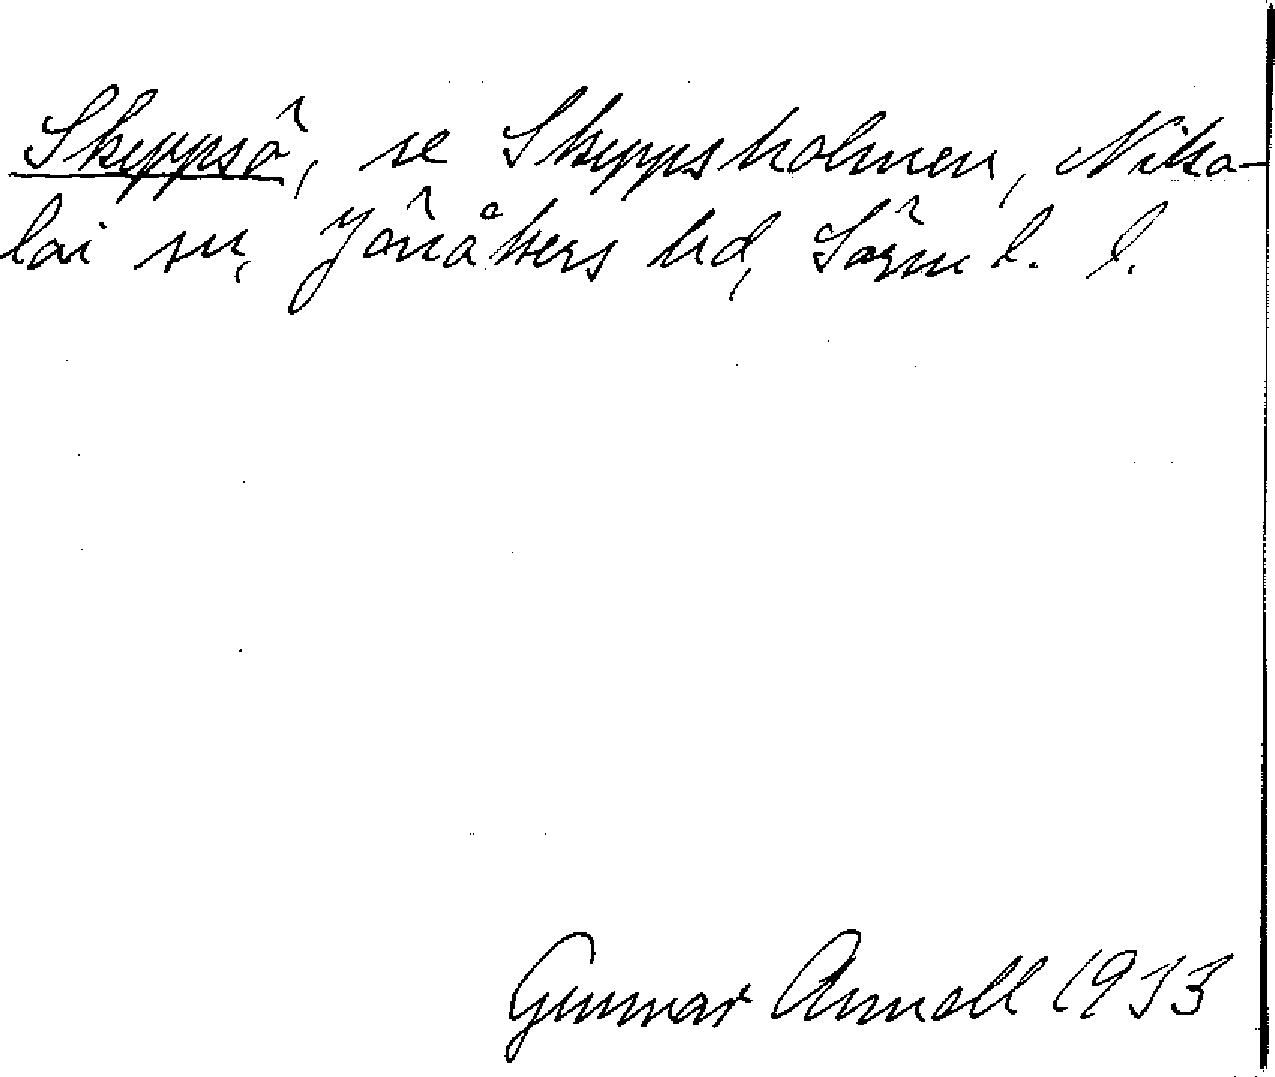 Skyppsö, se Skyppsholmen, Niko-
lai sn, Jönåkers hd, Sörml. l.
Gunnar Arnell 1933